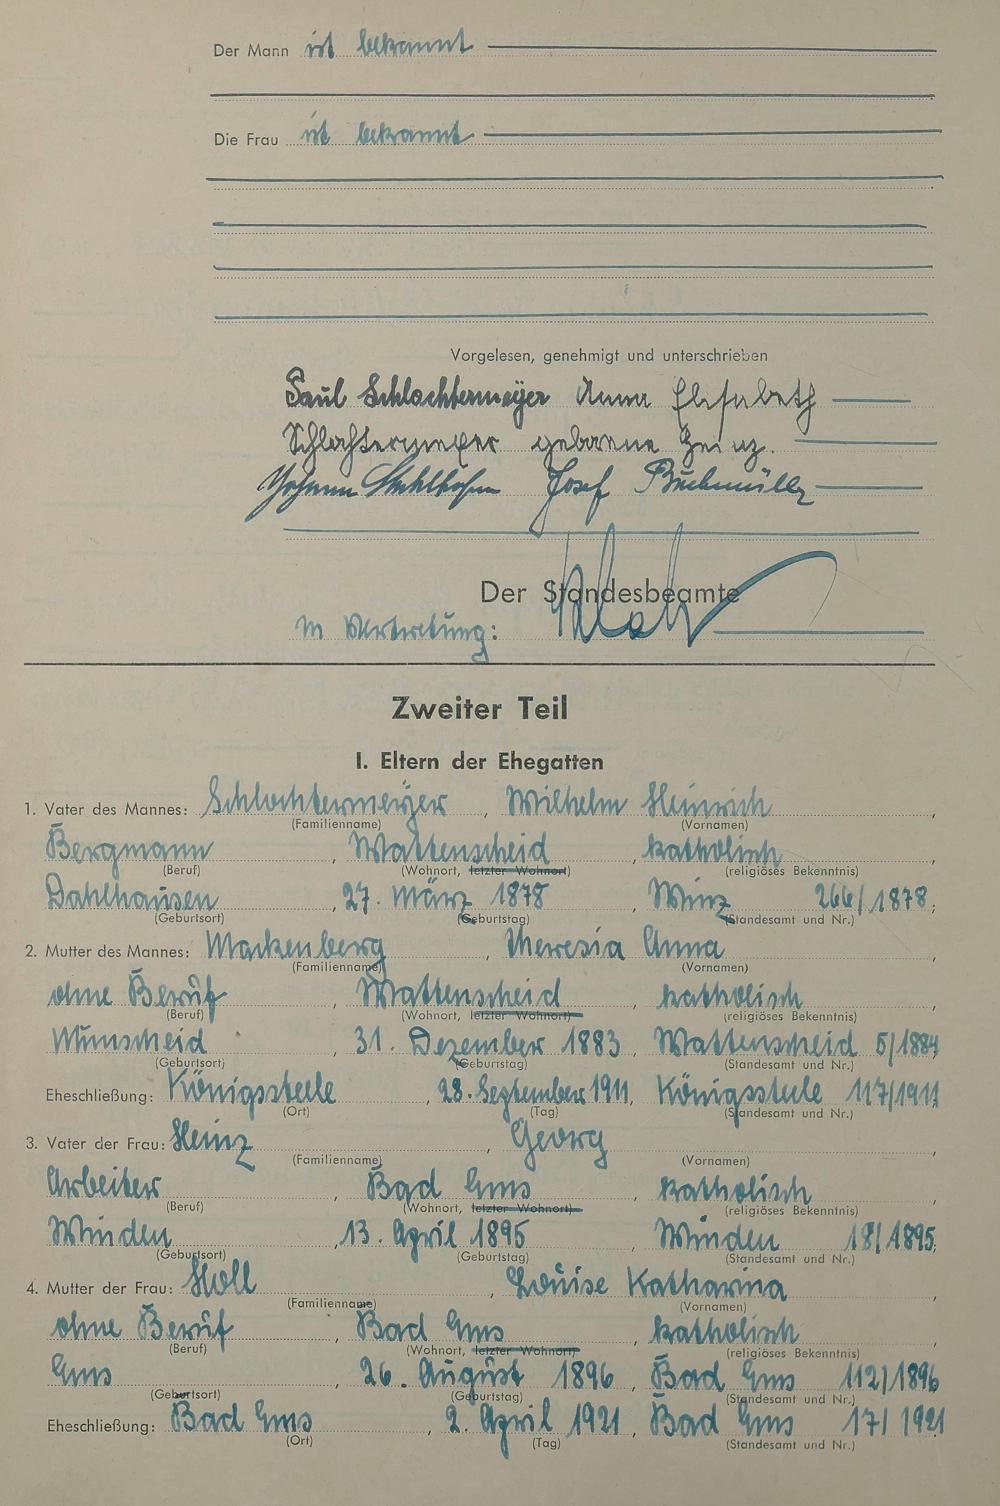 Der Mann ist bekannt
Die Frau ist bekannt
Vorgelesen, genehmigt und unterschrieben
Paul Schlachtermeÿer Anna Elisabeth
Schlachtermeyer geborene Heinz.
Johann Josef Buchmüller
Der Standesbeamte
In Vertretung:
Zweiter Teil
I. Eltern der Ehegatten
1. Vater des Mannes: Schlachtermeÿer, Wilhelm Heinrich,
(Familienname) (Vornamen)
Bergmann, Wattenscheid, katholisch,
(Beruf) (Wohnort, letzter Wohnort) (religiöses Bekenntnis)
Dahlhausen, 27. März 1878, Winz 266/1878;
(Geburtsort) (Geburtstag) (Standesamt und Nr.)
2. Mutter des Mannes: Mackenberg, Theresia Anna,
(Familienname) (Vornamen)
ohne Beruf, Wattenscheid, katholisch,
(Beruf) (Wohnort, letzter Wohnort) (religiöses Bekenntnis)
Munscheid, 31. Dezember 1883, Wattenscheid 5/1884
(Geburtsort) (Geburtstag) (Standesamt und Nr.)
Eheschließung: Königssteele, 28. September 1911, Königssteele 117/1911
(Ort) (Tag) (Standesamt und Nr.)
3. Vater der Frau: Heinz, Georg,
(Familienname) (Vornamen)
Arbeiter, Bad Ems, katholisch,
(Beruf) (Wohnort, letzter Wohnort) (religiöses Bekenntnis)
Winden, 13. April 1895, Winden 18/1895;
(Geburtsort) (Geburtstag) (Standesamt und Nr.)
4. Mutter der Frau: Holl, Louise Katharina,
(Familienname) (Vornamen)
ohne Beruf, Bad Ems, katholisch,
(Beruf) (Wohnort, letzter Wohnort) (religiöses Bekenntnis)
Ems, 26. August 1896, Bad Ems 112/1896
(Geburtsort) (Geburtstag) (Standesamt und Nr.)
Eheschließung: Bad Ems, 2. April 1921, Bad Ems 17/1921
(Ort) (Tag) (Standesamt und Nr.)